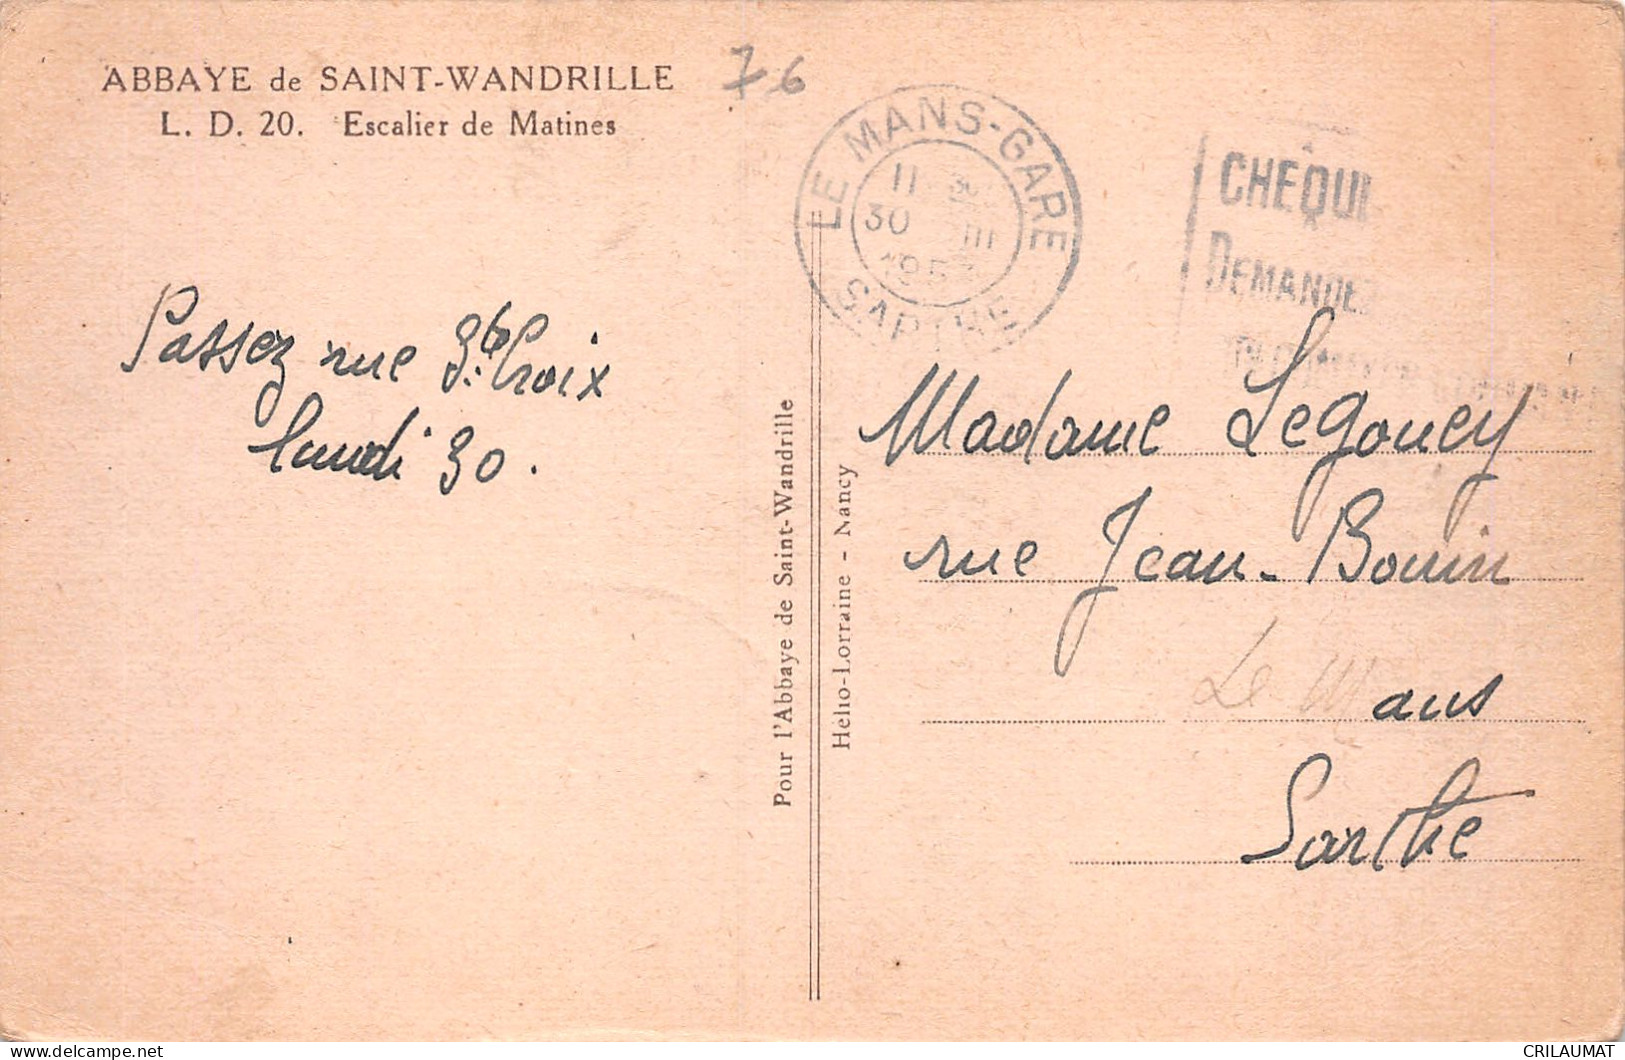 ABBAYE de SAINT-WANDRILLE
L. D. 20. Escalier de Matines
76
LE MANS-GARE
11 30
30 III
1953
SARTHE
CHEQUE
DEMANDEZ
Passez rue Ste Croix
lundi 30.
Pour l'Abbaye de Saint-Wandrille
Hélio-Lorraine - Nancy
Madame Legouey
rue Jean-Bouin
Le Mans
Sarthe
CRILAUMAT